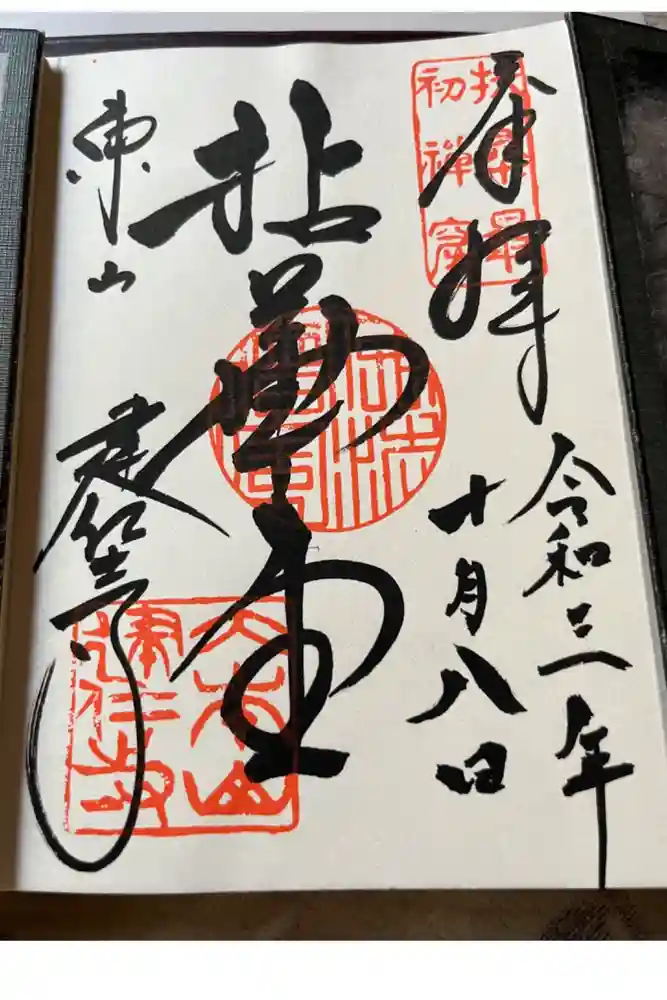 奉拝
扶桑最
初禅窟
令和三年
十月八日
拈華堂
東山
建仁寺
大本山
建仁寺